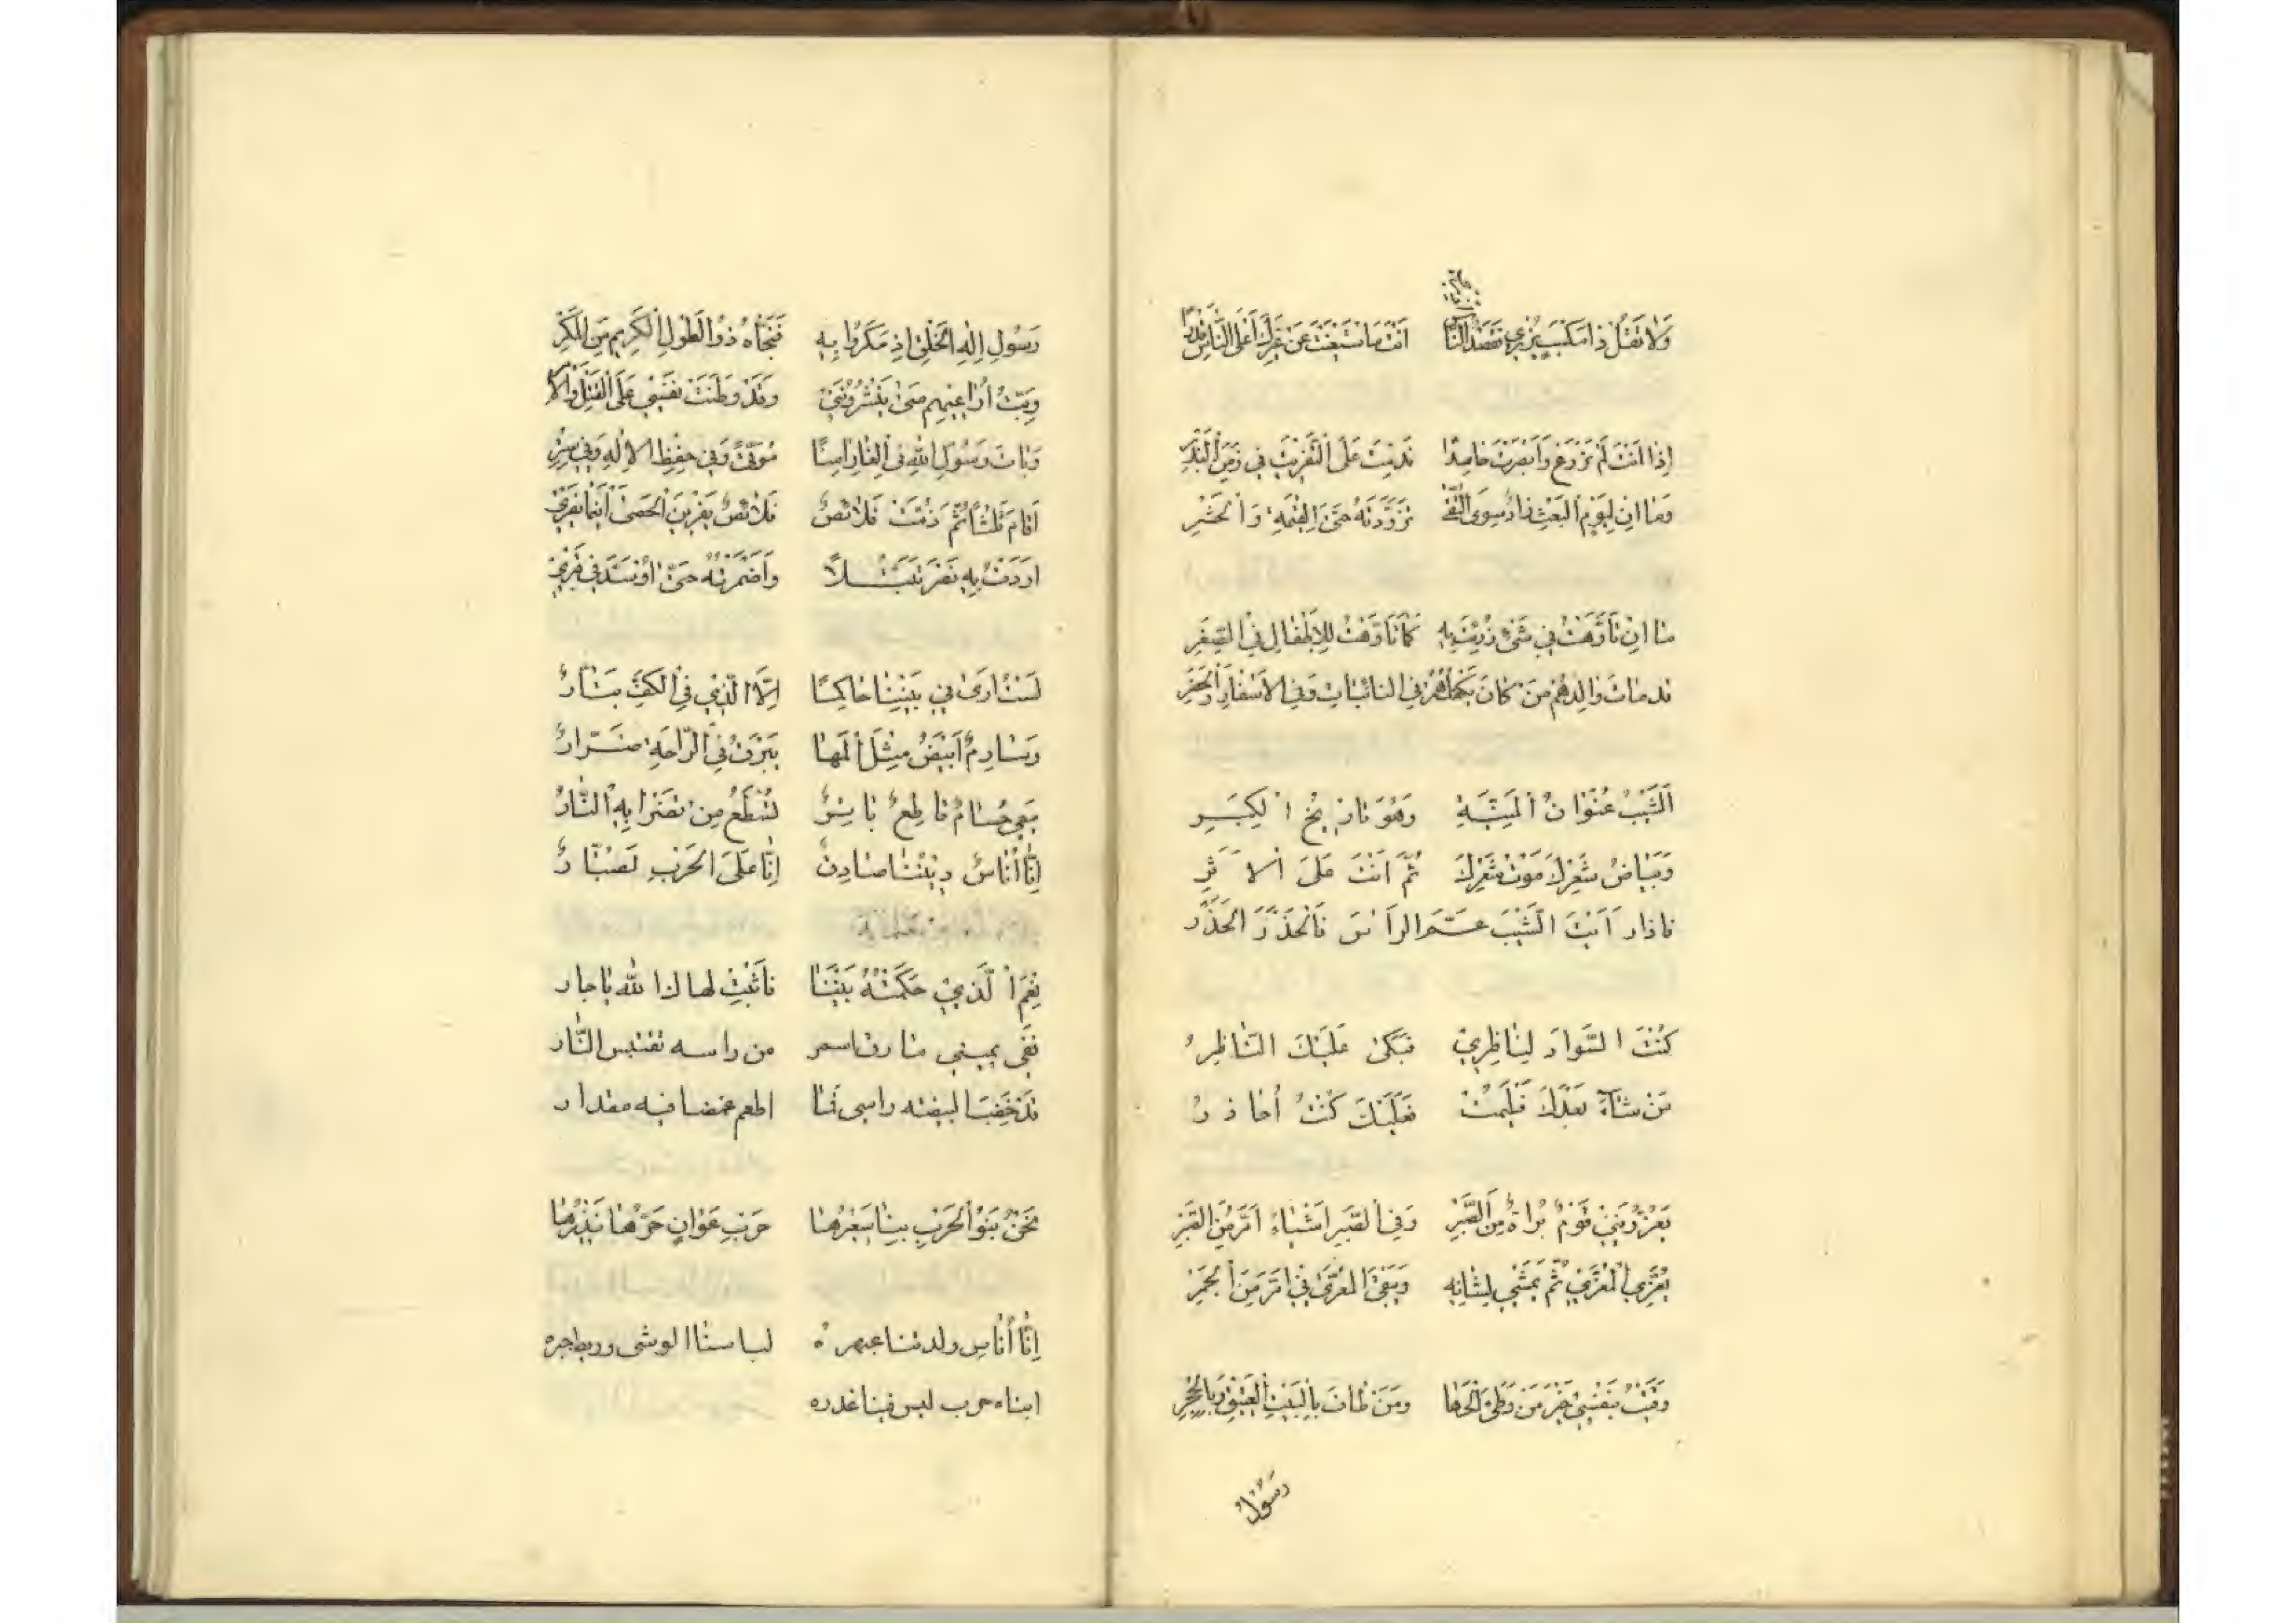 وَلَا تَقُلْ ذَا مَكْسَبٍ يُزْرِي فَقَصْدُ النَّاسِ اَنْتَ مَا اسْتَغْنَيْتَ عَنْ غَيْرِكَ اَعْلَى النَّاسِ قَدْرًا
اِذَا اَنْتَ لَمْ تَزْرَعْ وَاَبْصَرْتَ حَاصِدًا نَدِمْتَ عَلَى التَّفْرِيطِ فِي زَمَنِ الْبَذْرِ
وَمَا اِنْ لِيَوْمِ الْبَعْثِ زَادٌ سِوَى التُّقَى تَزَوَّدْتَهُ حَتَّى الْقِيٰمَةِ وَالْحَشْرِ
مَا اِنْ تَاَوَّهْتُ فِي شَيْءٍ رُزِئْتُ بِهِ كَمَا تَاَوَّهْتُ لِلْاَطْفَالِ فِي الصِّغَرِ
قد مَاتَ وَالِدُهُمْ مَنْ كَانَ يَكْفُلُهُمْ فِي النائبات وَفِي الْاَسْفَارِ وَالْحَضَرِ
اَلشَّيْبُ عُنْوَانُ الْمَنِيَّةِ وَهْوَ تَارِيخُ الْكِبَرِ
وَبَيَاضُ شَعْرِكَ مَوْتُ شَعْرِكَ ثُمَّ اَنْتَ عَلَى الْاَثَرِ
فاذا رَاَيْتَ الشَّيْبَ عَمَّ الرَّاْسَ فَالْحَذَرَ الْحَذَرْ
كُنْتَ السَّوَادَ لِنَاظِرِيْ فَبَكَى عَلَيْكَ النَّاظِرُ
مَنْ شَآءَ بَعْدَكَ فَلْيَمُتْ فَعَلَيْكَ كُنْتُ اُحَاذِرُ
يُعَزُّونَنِيْ قَوْمٌ بُرَاةٌ مِنَ الصَّبْرِ وَفِي الصَّبْرِ اَشْيَاءُ اَمَرُّ مِنَ الصَّبْرِ
يُعَزِّي الْمُعَزِّيْ ثُمَّ يَمْضِيْ لِشَانِهِ وَيَبْقَى الْمُعَزَّى فِيْ اَحَرَّ مِنَ الْجَمْرِ
وَقَيْتُ بِنَفْسِيْ خَيْرَ مَنْ وَطِئَ الْحَصَا وَمَنْ طَافَ بِالْبَيْتِ الْعَتِيْقِ وَبِالْحِجْرِ
رَسُوْلَ
رَسُوْلِ اِلٰهِ الْخَلْقِ اِذْ مَكَرُوْا بِهِ فَنَجَّاهُ ذُوْ الطَّوْلِ الْكَرِيمُ مِنَ الْمَكْرِ
وَبِتُّ اُرَاعِيْهِمْ مَتٰى يَنْشُرُوْنَنِيْ وَقَدْ وَطَّنْتُ نَفْسِيْ عَلَى الْقَتْلِ وَالْاَسْرِ
وَبَاتَ رَسُوْلُ اللّٰهِ فِي الْغَارِ اٰمِنًا مُوَقًّى وَفِي حِفْظِ الْاِلٰهِ وَفِيْ سِتْرِ
اَقَامَ ثَلٰثًا ثُمَّ زُمَّتْ قَلَائِصُ قَلَائِصُ يَفْرِيْنَ الْحَصَى اَيْنَمَا يَفْرِيْ
اَرَدْتُ بِهِ نَصْرَ تَبَتُّلًا وَاَضْمَرْتُهُ حَتّٰى اُوَسَّدَ فِيْ قَبْرِيْ
لَسْتُ اَرٰى فِيْ بَيْنِنَا حَاكِمًا اِلَّا الَّذِيْ فِي الْكَفِّ بَتَّارُ
وَصَارِمٌ اَبْيَضُ مِثْلُ الْمَهَا يَبْرُقُ فِي الرَّاحَةِ ضَرَّارُ
مَعِيْ حُسَامٌ قَاطِعٌ بَاتِرٌ تُسْطَعُ مِنْ تَضْرَابِهِ النَّارُ
اِنَّا اُنَاسٌ دِيْنُنَا صَادِقٌ اِنَّا عَلَى الْحَرْبِ لَصَبَّارُ
نِعْمَ الَّذِيْ حَكَمْتَهُ بَيْنَنَا فَاثْبُتْ لها لذا لله يا جار
فَفِي يميني صارف اسمر من راسه تقتبس النَّار
قَدْ خَضَبَ البيضة راسى فَمَا اطعم غمضا فيه مقدار
نَحْنُ بَنُوْ الْحَرْبِ بِنَا سَعِيْرُهَا حَرْبِ عَوَانٍ حَرُّهَا نَذِيْرُهَا
اِنَّا اُنَاس ولدتنا عبهره لباسنا الوشى وريط حبره
ابناء حرب ليس فينا غدره